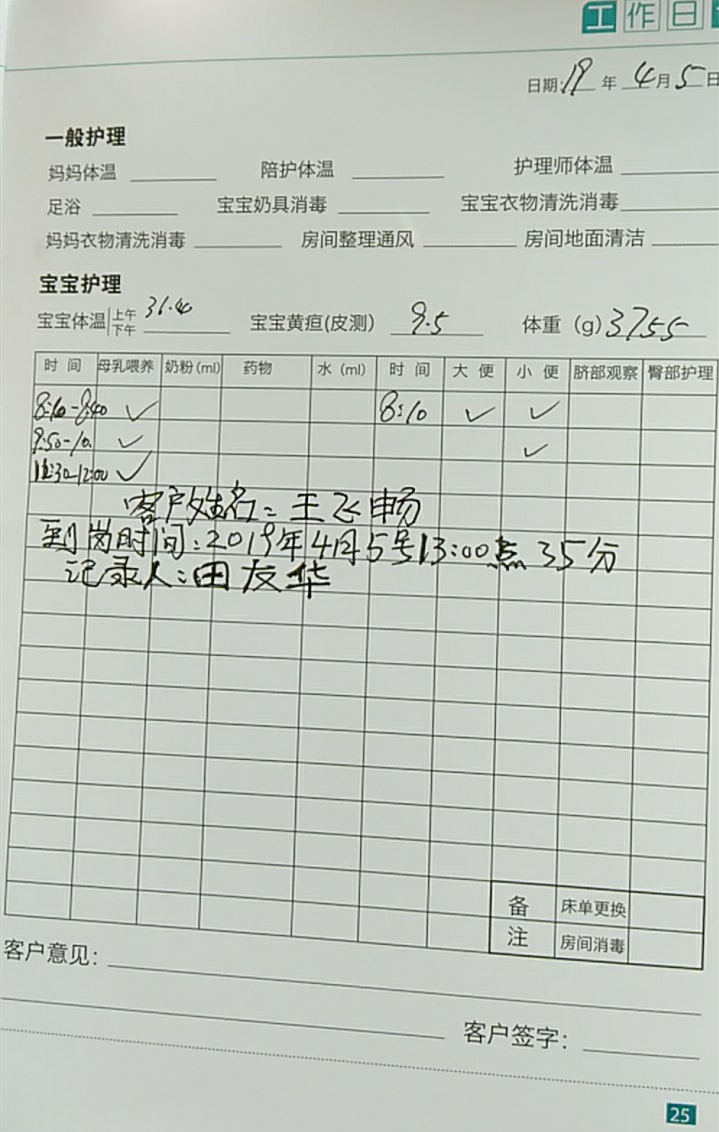 工作日
日期: 19 年 4 月 5 日
一般护理
妈妈体温 陪护体温 护理师体温
足浴 宝宝奶具消毒 宝宝衣物清洗消毒
妈妈衣物清洗消毒 房间整理通风 房间地面清洁
宝宝护理
宝宝体温 上午 下午 36.40 宝宝黄疸(皮测) 9.5 体重 (g) 3755
时间 母乳喂养 奶粉(ml) 药物 水(ml) 时间 大便 小便 脐部观察 臀部护理
8:10-8:40 ✓ 8:10 ✓ ✓
9:50-10. ✓ ✓
11:30-12:00 ✓
客户姓名: 王飞畅
到岗时间:2019年4月5号13:00点35分
记录人:田友华
备注 床单更换
房间消毒
客户意见:
客户签字:
25